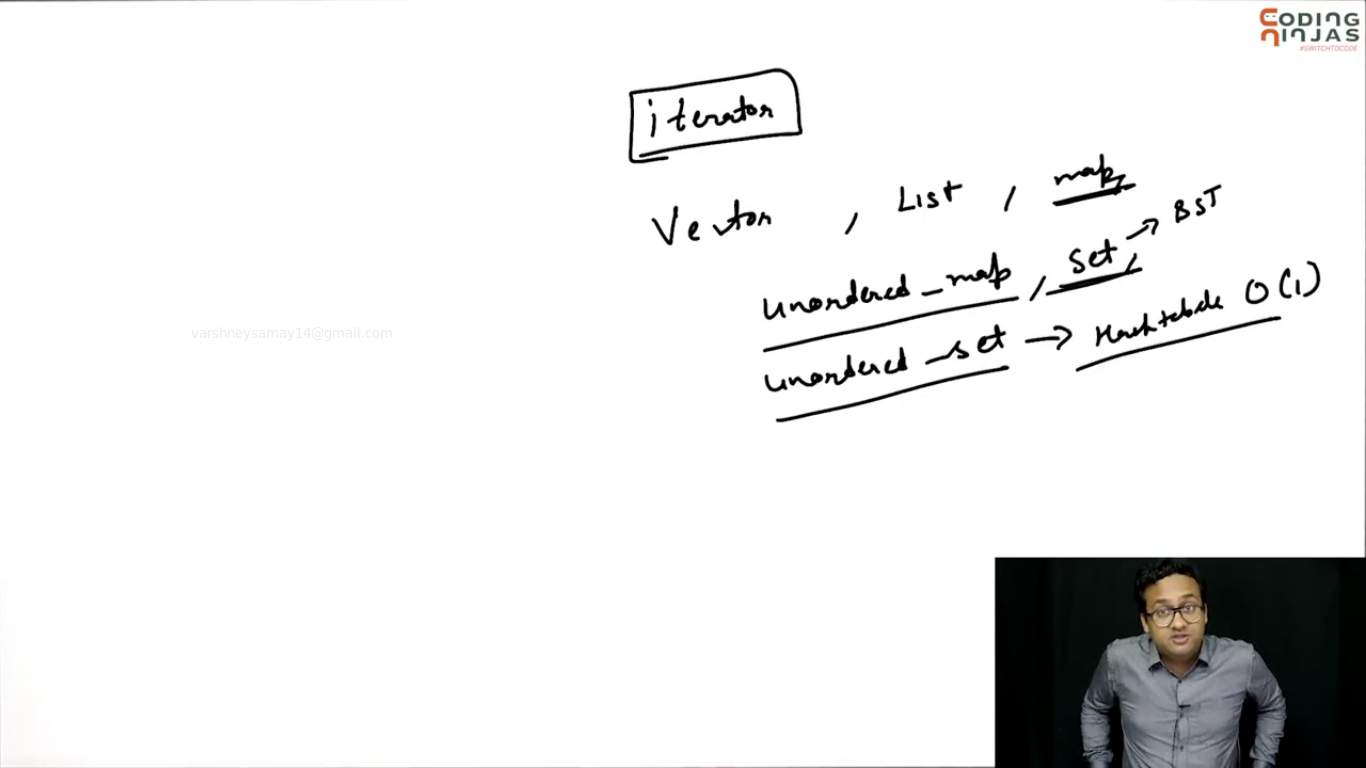 CODING
NINJAS
#SWITCHTOCODE
iterator
Vector , List , map,
unordered_map , Set, → BST
unordered_set → Hashtable O(1)
varshneysamay14@gmail.com